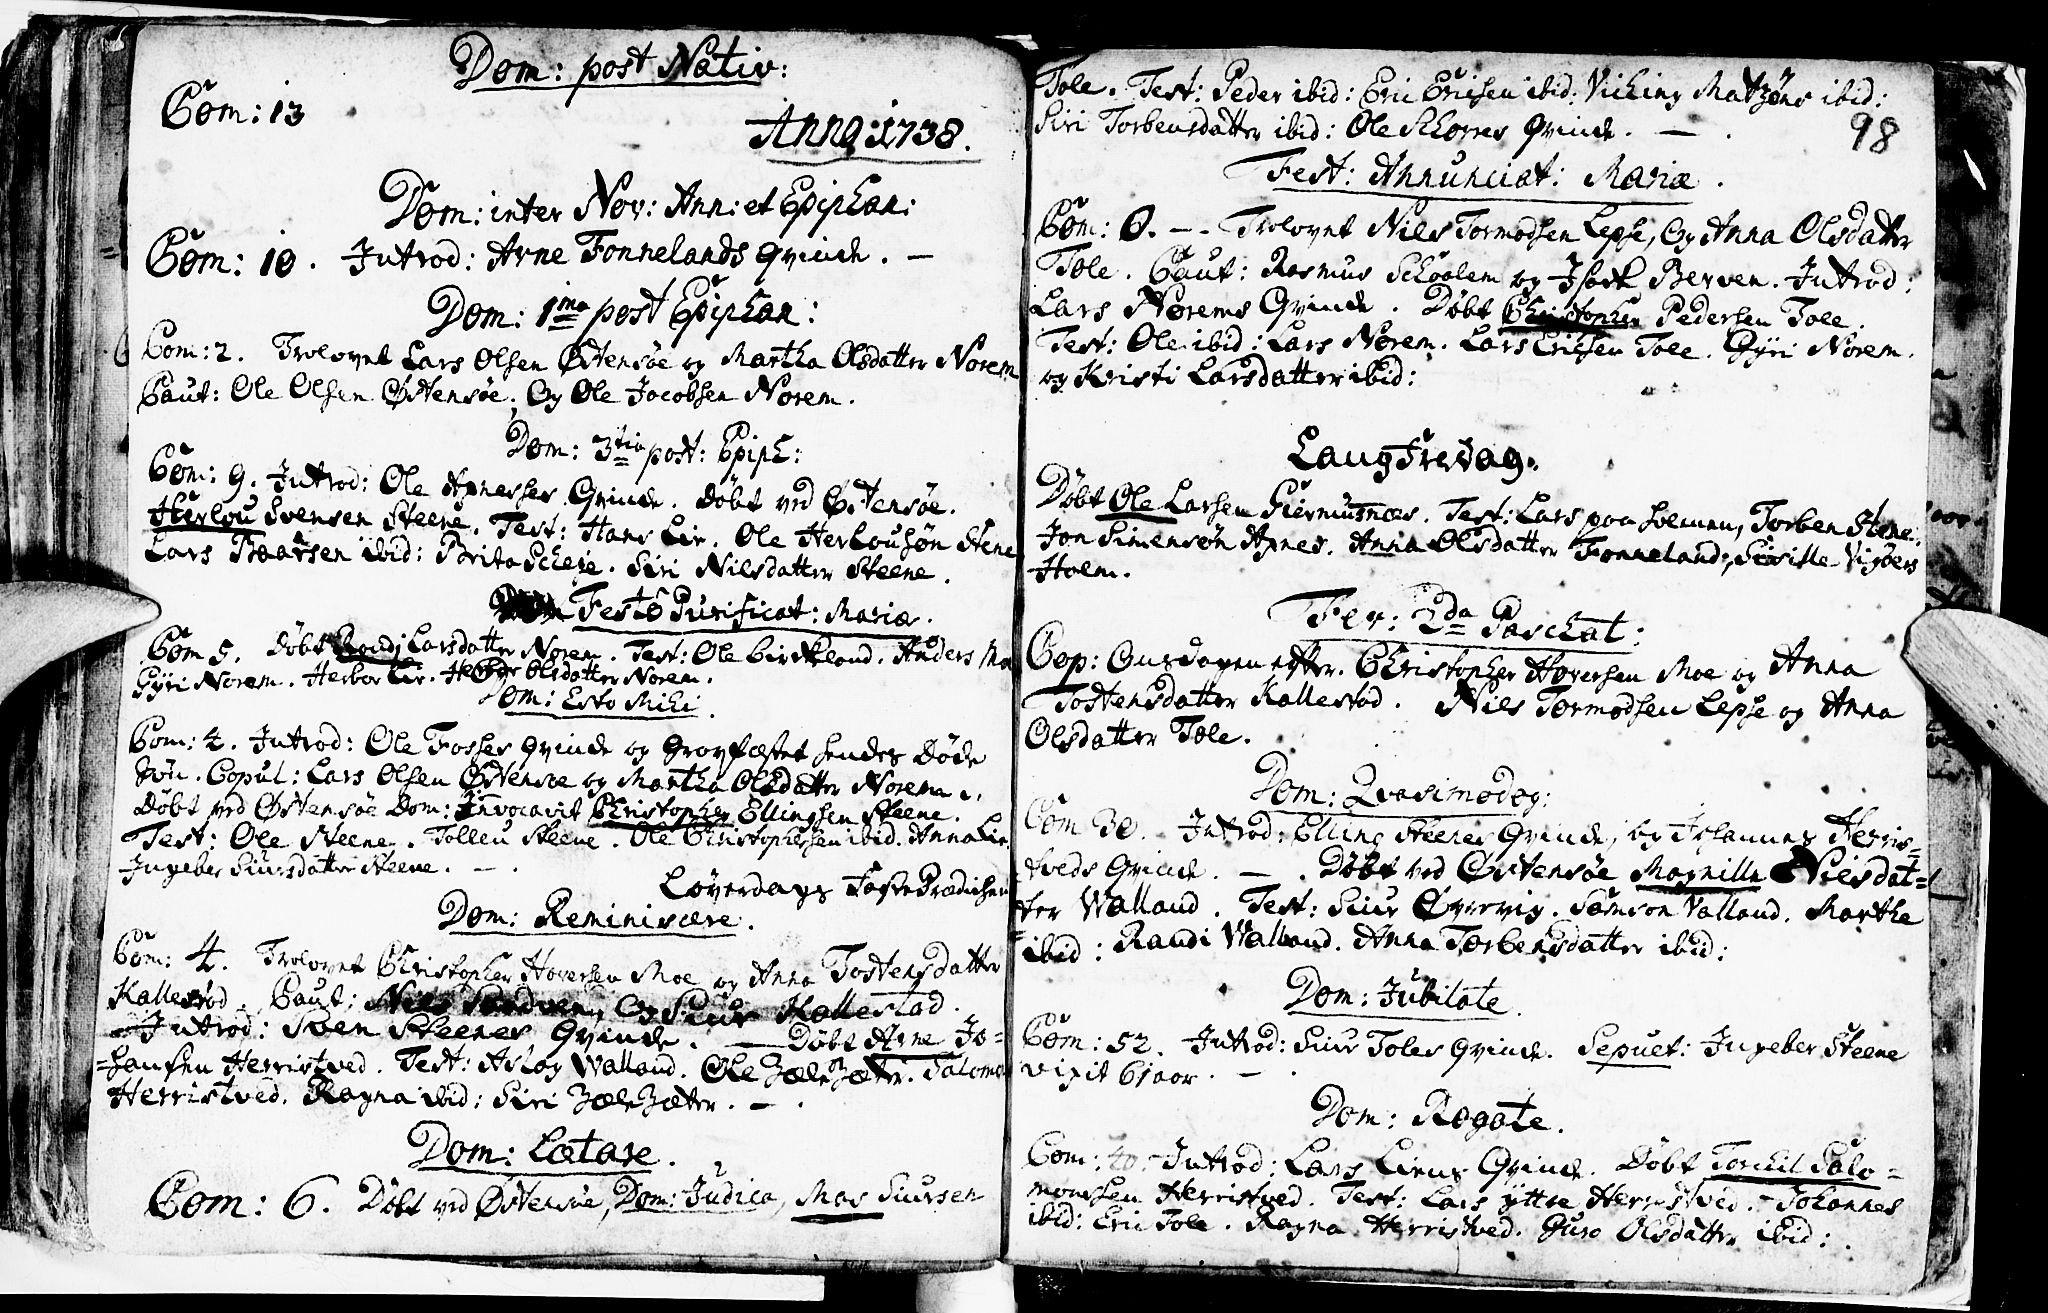 Dom: post Nativ:
Com: 13
Anno: 1738.
Dom: inter Nov: Ann: et Epiphan:
Com: 10. Introd: Arne Fonnelands Qvinde. —
Dom: 1ma post Epiphan:
Com: 2. Trolovet Lars Olsen Østensøe og Martha Olsdatter Norem
Caut: Ole Olsen Østensøe, Og Ole Jacobsen Norem.
Dom: 3tia post: Epiph:
Com: 9. Introd: Ole Axnesses Qvinde. Døbt ved Østensøe.
Herlou Svensen Steene. Test: Hans Lie. Ole Herlousøn Stene
Lars Baarsen ibid: Brita Scheje. Siri Nilsdatter Steene.
Festo Purificat: Mariæ.
Com 5. Døbt Randj Larsdatter Norem. Test: Ole Birkeland. Anders
Gÿri Norem. Herbor Lie. Olsdatter Norem.
Dom: Esto Mihi.
Com: 4. Introd: Ole Fosses Qvinde og Gravfæstet hendes Døde
Søn. Copul: Lars Olsen Østensøe og Martha Olsdatter Norem.
Døbt ved Østensøe Dom: Invocavit Christopher Ellingsen Steene.
Test: Ole Steene. Tolleu Steene. Ole Christophersen ibid. Anna Lie.
Ingeber Siursdatter Steene. —.
Løverdags Faste Prædichen
Dom: Reminiscere.
Com: 4. Trolovet Christopher Haversen Moe og Anna Tostensdatter
Kallestad. Caut: Nils Sandven, Og Siur Kallestad.
Introd: Sven Steenes Qvinde. — Døbt Arne Jo-
hansen Herristved. Test: Aslag Walland. Ole Salomon
Herristved. Ragna ibid: Siri —.
Dom: Lætare.
Com: 6. Døbt ved Østensøe, Dom: Judica, Mas Siursen
Tole. Test: Peder ibid: Eric Erichsen ibid: Viching Matzøns ibid:
Siri Torbensdatter ibid: Ole Schorres Qvinde. —.
98
Fest: Annunciat: Mariæ.
Com: 0. —. Trolovet Niels Tormodsen Lepse, Og Anna Olsdatter
Tole. Caut: Rasmus Schaalem og Isack Berven. Introd:
Lars Norems Qvinde. Døbt Christopher Pedersen Tole.
Test: Ole ibid: Lars Norem. Lars Erichsen Tole. Gÿri Norem.
og Kristi Larsdatter ibid:
Langfredag.
Døbt Ole Larsen Giermusnæs. Test: Lars paa Holmen, Torben Stene.
Jon Simensøn Axnes. Anna Olsdatter Fonneland, Sisille Vigøers
Holm.
Fer: 2da Paschat:
Cop: Onsdagen etter. Christopher Haversen Moe og Anna
Tostensdatter Kallestad. Niels Tormodsen Lepse og Anna
Olsdatter Tole.
Dom: Qvasimodog:
Com 30. Introd: Elling Steenes Qvinde, og Johannes Herris-
tveds Qvinde. —. Døbt ved Østensøe Magnilla Nielsdat-
ter Walland. Test: Siur Øvrevig. Samson Valland. Martha
ibid: Randi Walland. Anna Torbensdatter ibid:
Dom: Jubilate.
Com: 52. Introd: Siur Toles Qvinde. Sepult: Ingeber Steene
vixit 61 aar. —.
Dom: Rogate.
Com: 40. Introd: Lars Liens Qvinde. Døbt Torchil Salo-
monsen Herristved. Test: Lars ÿttre Herristved. Johannes
ibid: Eric Tole. Ragna Herristved. Guro Olsdatter ibid:.